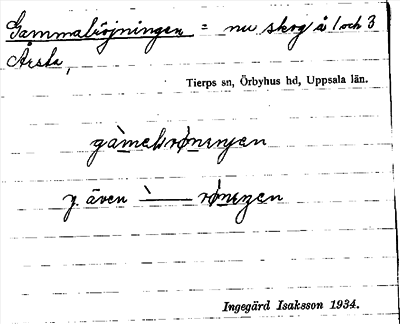 Gammalröjningen = nu skog å 1 och 3
Årsta,
Tierps sn, Örbyhus hd, Uppsala län.
gàmelrøningen
y. även ˋ—— røningen
Ingegärd Isaksson 1934.